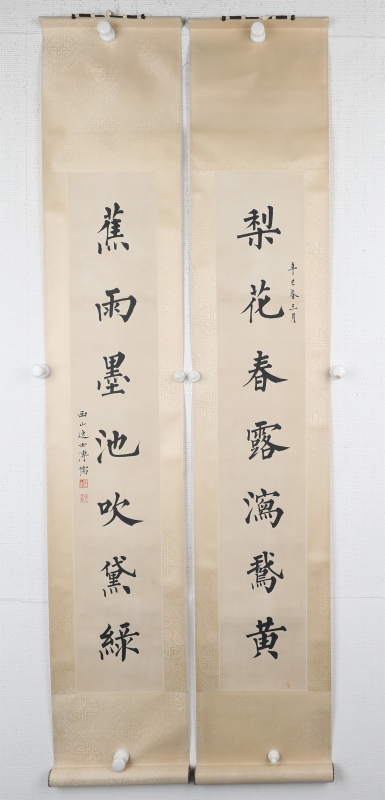 梨花春露瀉鵞黃
辛巳春三月
蕉雨墨池吹黛綠
西山逸士溥儒